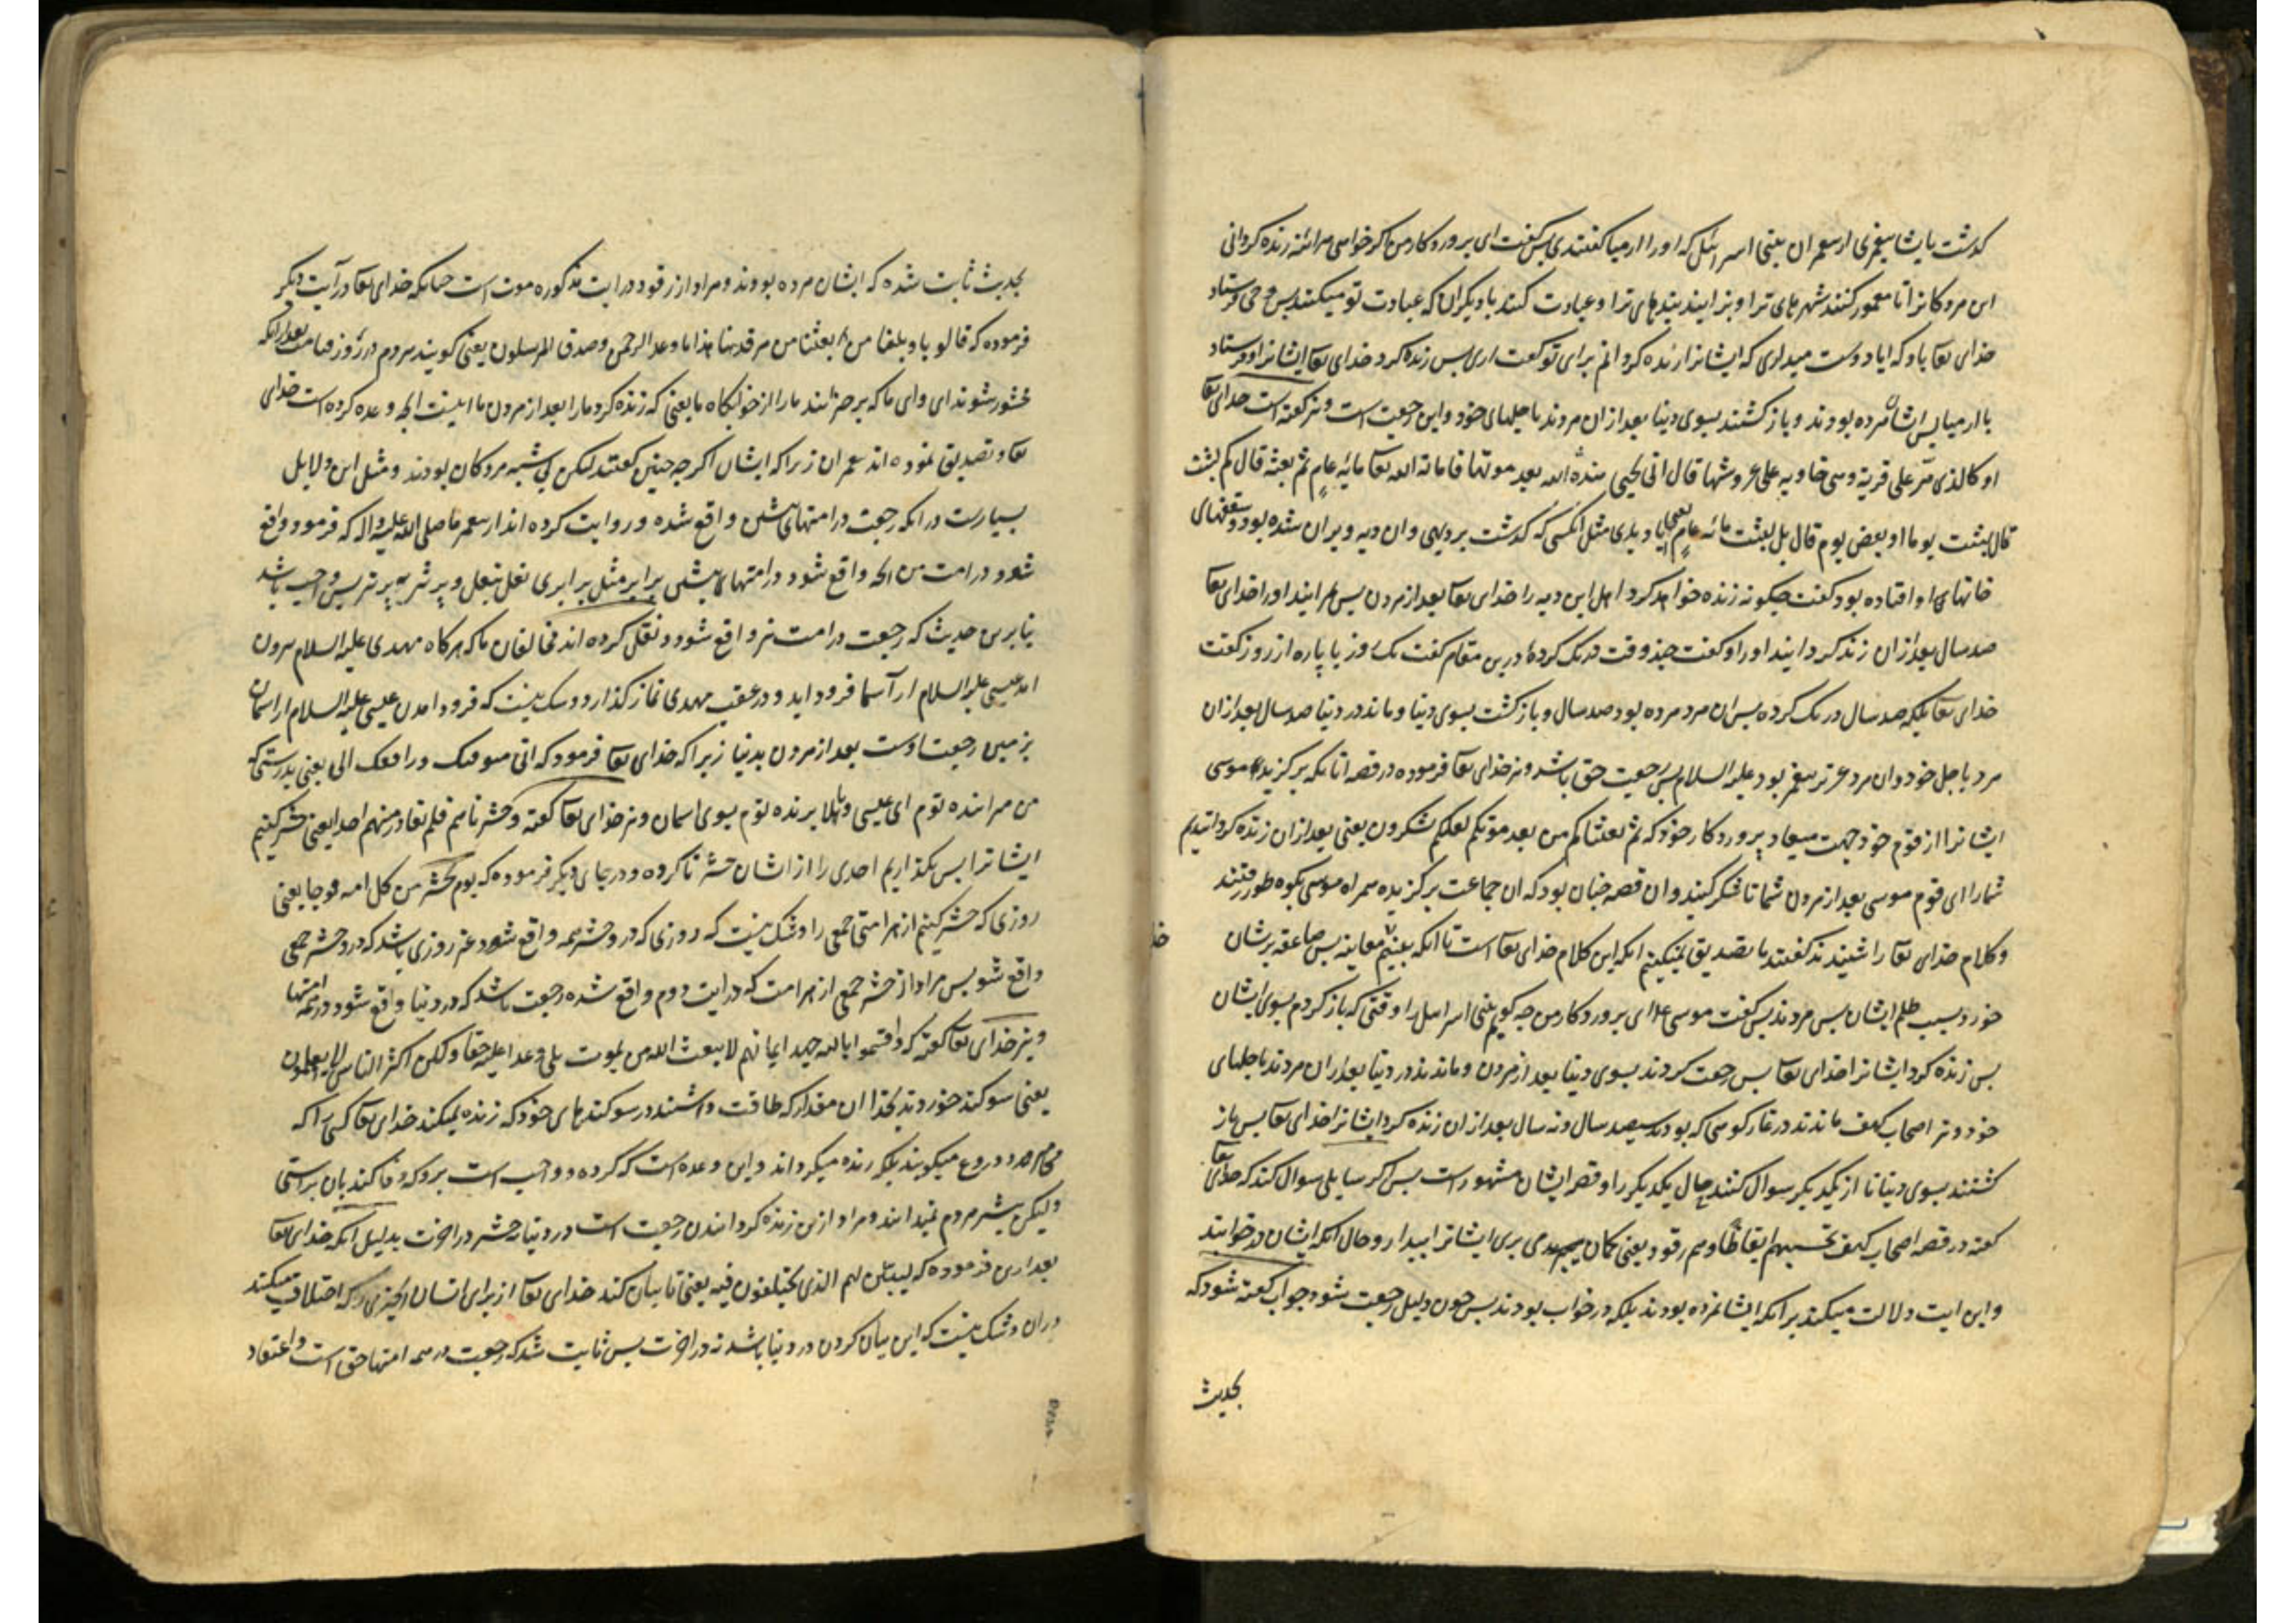 کدشت بایشا پیغمبری از پیغمبران بنی اسرائیل که او را ارمیا کفتندی پس کفت ای پروردکار من اکر خواهی هرآینه زنده کردانی
این مردکانرا تا معمور کنند شهرهای ترا و بزایند بندهای ترا و عبادت کنند با دیکران که عبادت تو میکنند پس وحی فرستاد
خدای تعا باو که ایا دوست میداری که ایشانرا زنده کردانم برای تو کفت اری پس زنده کرد خدای تعا ایشانرا و فرستاد
با ارمیا پس ایشان مرده بودند و باز کشتند بسوی دنیا بعد ازان مردند باجلهای خود و این رجعت است و نیز کفته است خدای تعا
او کالذی مر علی قریة وهی خاویه علی عروشها قال انی یحیی هذه الله بعد موتها فاماته الله تعا مائه عام ثم بعثه قال کم لبثت
قال لبثت یوما او بعض یوم قال بل لبثت مائه عام یعنی ایا دیدی مثل انکسی که کدشت بر دیهی و ان دیه ویران شده بود و سقفهای
خانهای او افتاده بود کفت چکونه زنده خواهد کرد اهل این دیه را خدای تعا بعد از مردن پس میرانید او را خدای تعا
صد سال بعد ازان زنده کردانید او را و کفت چند وقت درنک کرده درین مقام کفت یک روز یا پاره از روز کفت
خدای تعا بلکه صد سال درنک کرده پس ان مرد مرده بود صد سال و باز کشت بسوی دنیا و ماند در دنیا صد سال بعد ازان
مرد باجل خود و ان مرد عزیر پیغمبر بود علیه السلام پس رجعت حق باشد و نیز خدای تعا فرموده در قصه انانکه برکزید موسی
ایشانرا از قوم خود جهت میعاد پروردکار خود که ثم بعثناکم من بعد موتکم لعلکم تشکرون یعنی بعد ازان زنده کردانیدیم
شما را ای قوم موسی بعد از مردن شما تا شکر کنید و ان قصه چنان بود که ان جماعت برکزیده همراه موسی بکوه طور رفتند
و کلام خدای تعا را شنیدند کفتند ما تصدیق نمیکنیم انکه این کلام خدای تعا است تا انکه ببینیم معاینه پس صاعقه بریشان
خورد بسبب ظلم ایشان پس مردند پس کفت موسی ع ای پروردکار من چه کویم بنی اسرائیل را وقتی که باز کردم بسوی ایشان
پس زنده کرد ایشانرا خدای تعا پس رجعت کردند بسوی دنیا بعد از مردن و ماندند در دنیا بعد ازان مردند باجلهای
خود و نیز اصحاب کهف ماندند در غار کوهی که بودند سیصد سال و نه سال بعد ازان زنده کرد ایشانرا خدای تعا پس باز
کشتند بسوی دنیا تا از یکدیکر سوال کنند حال یکدیکر را و قصه ایشان مشهور است پس اکر سایلی سوال کند که خدای تعا
کفته در قصه اصحاب کهف تحسبهم ایقاظا وهم رقود یعنی کمان می بری ایشانرا بیدار و حال انکه ایشان در خوابند
و این ایت دلالت میکند بر انکه ایشان نمرده بودند بلکه در خواب بودند پس چون دلیل رجعت شود جواب کفته شود که
بحدیث
بحدیث ثابت شده که ایشان مرده بودند و مراد از رقود در ایت مذکوره موت است چنانکه خدای تعا در آیت دیکر
فرموده که قالو یا ویلنا من بعثنا من مرقدنا هذا ما وعد الرحمن وصدق المرسلون یعنی کویند مردم در روز قیامت بعد ازانکه
محشور شوند ای وای ما که برخیزانید ما را از خوابکاه ما یعنی که زنده کرد ما را بعد از مردن ما اینست انچه وعده کرده است خدای
تعا و تصدیق نموده اند پیغمبران زیرا که ایشان اکرچه چنین کفتند لیکن بی شبهه مردکان بودند و مثل این دلایل
بسیارست در انکه رجعت در امتهای پیشین واقع شده و روایت کرده اند از پیغمبر ما صلی الله علیه واله که فرمود واقع
شود در امت من انچه واقع شود در امتهای پیشین برابر مثل برابری نعل بنعل و پر تیر به پر تیر پس واجب باشد
بنابرین حدیث که رجعت در امت نیز واقع شود و نقل کرده اند مخالفان ما که هرکاه مهدی علیه السلام بیرون
اید عیسی علیه السلام از آسمان فرود اید و در عقب مهدی نماز کذارد و شک نیست که فرود امدن عیسی علیه السلام از اسمان
بزمین رجعت اوست بعد از مردن بدنیا زیرا که خدای تعا فرمود که انی متوفیک ورافعک الی یعنی بدرستی که
من میراننده توم ای عیسی و بالا برنده توم بسوی اسمان و نیز خدای تعا کفته وحشرناهم فلم نغادر منهم احدا یعنی حشر کنیم
ایشانرا پس نکذاریم احدی را از ایشان حشر ناکرده و در جای دیکر فرموده که یوم نحشر من کل امه فوجا یعنی
روزی که حشر کنیم از هر امتی جمعی را و شک نیست که روزی که در و حشر همه واقع شود غیر روزی باشد که در و حشر جمعی
واقع شود پس مراد از حشر جمعی از هر امت که در ایت دوم واقع شده رجعت باشد که در دنیا واقع شود در همه امتها
و نیز خدای تعا کفته که واقسموا بالله جهد ایمانهم لا یبعث الله من یموت بلی وعدا علیه حقا ولکن اکثر الناس لا یعلمون
یعنی سوکند خوردند بخدا ان مقدار که طاقت داشتند در سوکندهای خود که زنده نمیکند خدای تعا کسی را که
میرد دروغ میکویند بلکه زنده میکرداند و این وعده است که کرده و واجب است برو که وفا کند بان براستی
ولیکن بیشتر مردم نمیدانند و مراد ازین زنده کردانیدن رجعت است در دنیا نه حشر در اخرت بدلیل انکه خدای تعا
بعد ازین فرموده که لیبین لهم الذی یختلفون فیه یعنی تا بیان کند خدای تعا از برای ایشان انچیزی را که اختلاف میکنند
دران و شک نیست که این بیان کردن در دنیا باشد نه در اخرت پس ثابت شد که رجعت در همه امتها حق است و اعتقاد